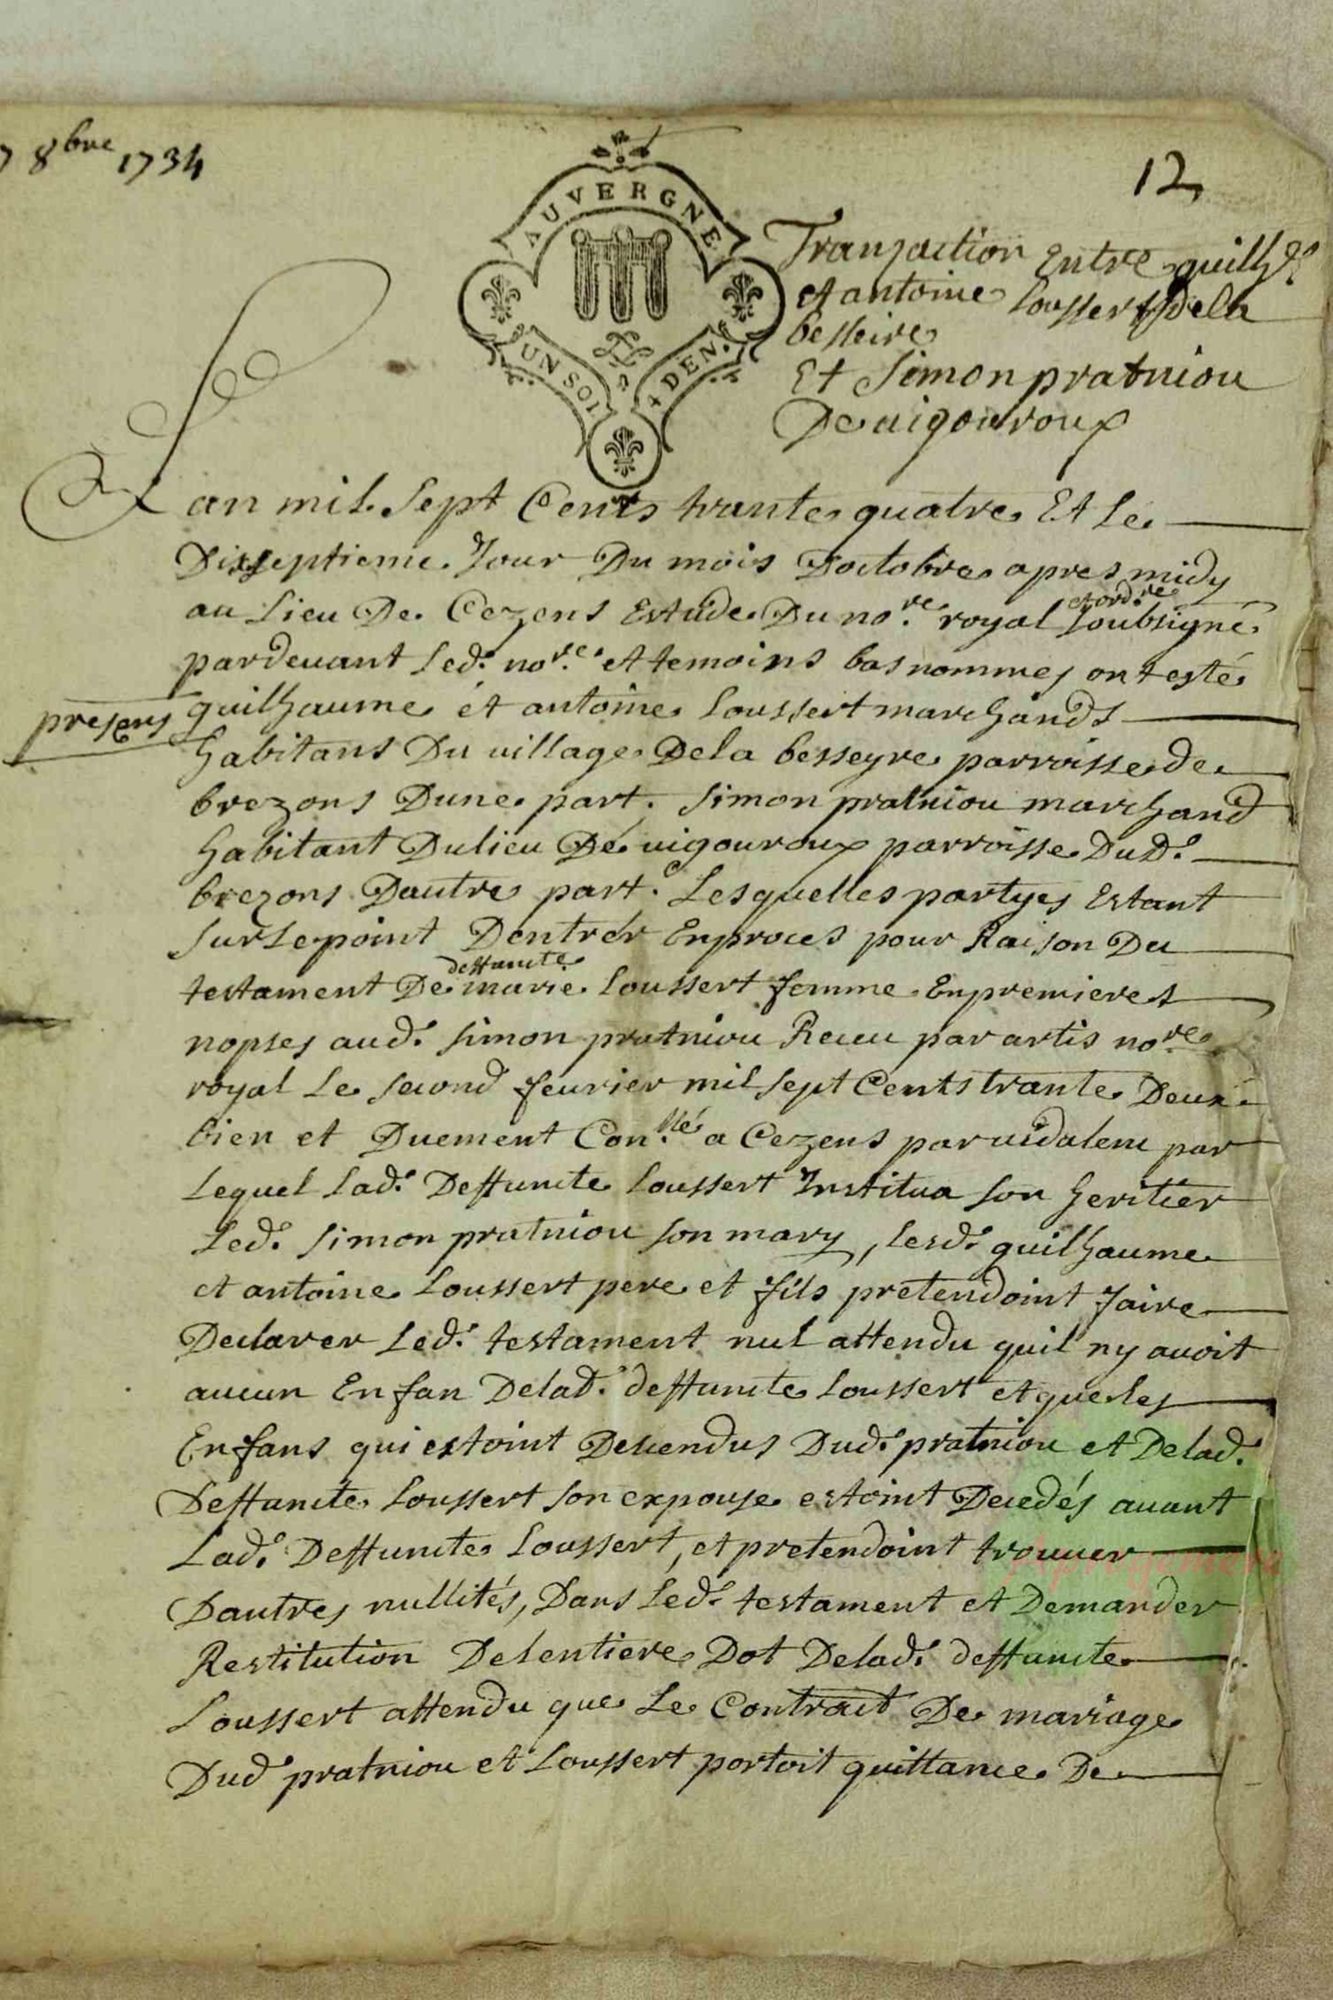 7 8bre 1734
12
AUVERGNE
UN SOL 4 DEN.
Tranzaction Entre guilhe
et antoine Loussert dela
besseire
Et Simon pratniou
De vigouroux
Lan mil Sept Cents trante quatre Et Le
Dixseptieme Jour Du mois Doctobre apres midy
au Lieu De Cezens Estude Du nore. royal et ordre Soubsigné
pardevant Led. nore. et temoins bas nommes ont esté
presens guilhaume et antoine Loussert marchands
habitans Du village Dela besseyre parroisse de
brezons Dune part. Simon pratniou marchand
habitant Dulieu De vigouroux parroisse Dud.
brezons Dautre part. Lesquelles partyes Estant
Sur Le point Dentrér En proces pour Raison Du
testament De deffuncte marie Loussert femme En premieres
nopses aud. Simon pratniou Receu par artis nore
royal Le Second feurier mil sept Cents trante Deux
bien et Duement Con.llé a Cezens par vidalenc par
Lequel Lad. Deffuncte Loussert Institua son heritier
Led. Simon pratniou son mary, Lesd. guilhaume
et antoine Loussert pere et fils pretendoint faire
Declarer Led. testament nul attendu quil ny avoit
aucun Enfan Delad. deffuncte Loussert et que les
Enfans qui estoint Descendus Dud. pratniou et Delad.
Deffuncte Loussert son expouse estoint Decedés avant
Lad. Deffuncte Loussert, et pretendoint trouver
Dautres nullités, Dans Led. testament et Demander
Restitution De Lentiere Dot Delad. deffuncte
Loussert attendu que Le Contrait De mariage
Dud. pratniou et Loussert portoit quittance De